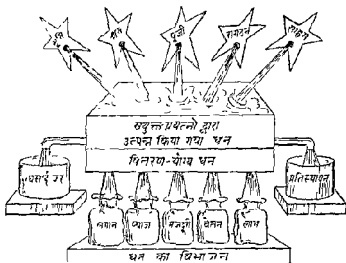 भूमि
श्रम
पूंजी
संगठन
साहस
संयुक्त प्रयत्नों द्वारा
उत्पन्न किया गया धन
वितरण-योग्य धन
प्रतिस्थापन
लगान
ब्याज
मजदूरी
वेतन
लाभ
धन का विभाजन